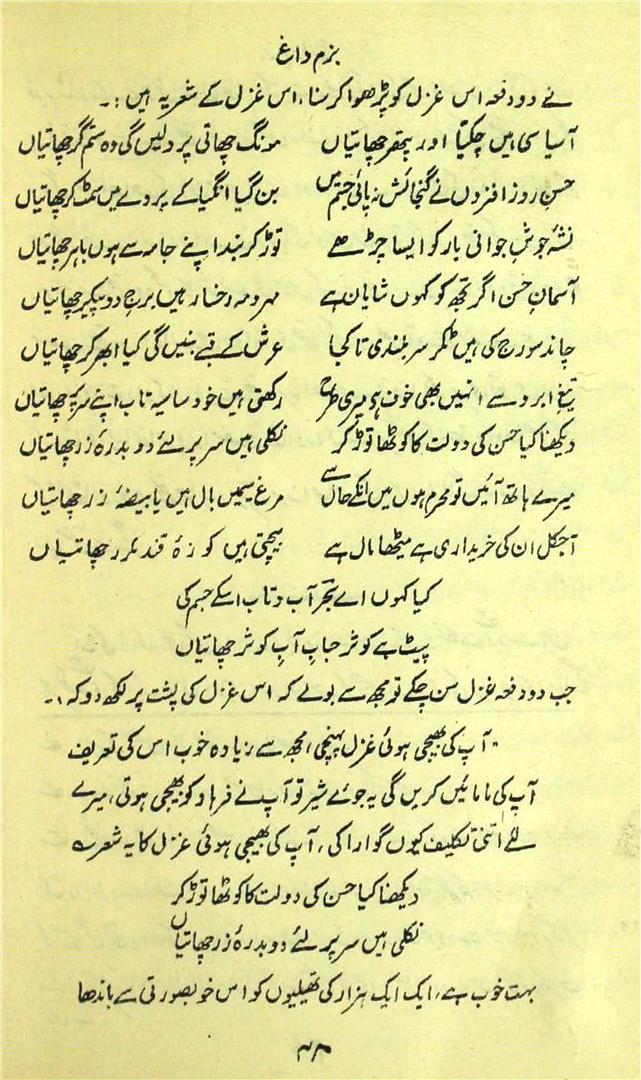 بزم داغ
نے دو دفعہ اس غزل کو پڑھوا کر سنا، اس غزل کے شعر یہ ہیں :۔
آسیا سی ہیں چکتیا اور پتھر چھاتیاں مونگ چھاتی پر دلیں گی وہ ستم گر چھاتیاں
حسنِ روز افزوں نے گنجائش نہ پائی جسم میں بن گیا انگیا کے پردے میں سمٹ کر چھاتیاں
نشۂ جوشِ جوانی یار کو ایسا چڑھے توڑ کر بند اپنے جامہ سے ہوں باہر چھاتیاں
آسمانِ حسن اگر تجھ کو کہوں شایان ہے مہر و مہ رخسار ہیں برجِ دو پیکر چھاتیاں
چاند سورج کی ہیں ٹکر سربلندی تا کجا عرش کے قبے بنیں گی کیا ابھر کر چھاتیاں
تیغِ ابرو سے انہیں بھی خوف ہے میری طرح رکھتی ہیں خود سا سیہ تاب اپنے سر پہ چھاتیاں
دیکھنا کیا حسن کی دولت کا کوٹھا توڑ کر نکلی ہیں سر پر لئے دو بدرۂ زر چھاتیاں
میرے ہاتھ آئیں تو محرم ہوں میں انکے حال سے مرغ سیمیں بال ہیں یا بیضۂ زر چھاتیاں
آجکل ان کی خریداری ہے میٹھا مال ہے بیچتی ہیں کوزۂ قند مکرر چھاتیاں
کیا کہوں اے بحر آب و تاب اسکے جسم کی
پیٹ ہے کوثر حبابِ آبِ کوثر چھاتیاں
جب دو دفعہ غزل سن چکے تو مجھ سے بولے کہ اس غزل کی پشت پر لکھ دو کہ :۔
"آپ کی بھیجی ہوئی غزل پہنچی، مجھ سے زیادہ خوب اس کی تعریف
آپ کی مامائیں کریں گی یہ جوئے شیر تو آپ نے فرہاد کو بھیجی ہوتی، میرے
لئے اتنی تکلیف کیوں گوارا کی، آپ کی بھیجی ہوئی غزل کا یہ شعر ے
دیکھنا کیا حسن کی دولت کا کوٹھا توڑ کر
نکلی ہیں سر پر لئے دو بدرۂ زر چھاتیاں
بہت خوب ہے، ایک ایک ہزار کی تھیلیوں کو اس خوبصورتی سے باندھا